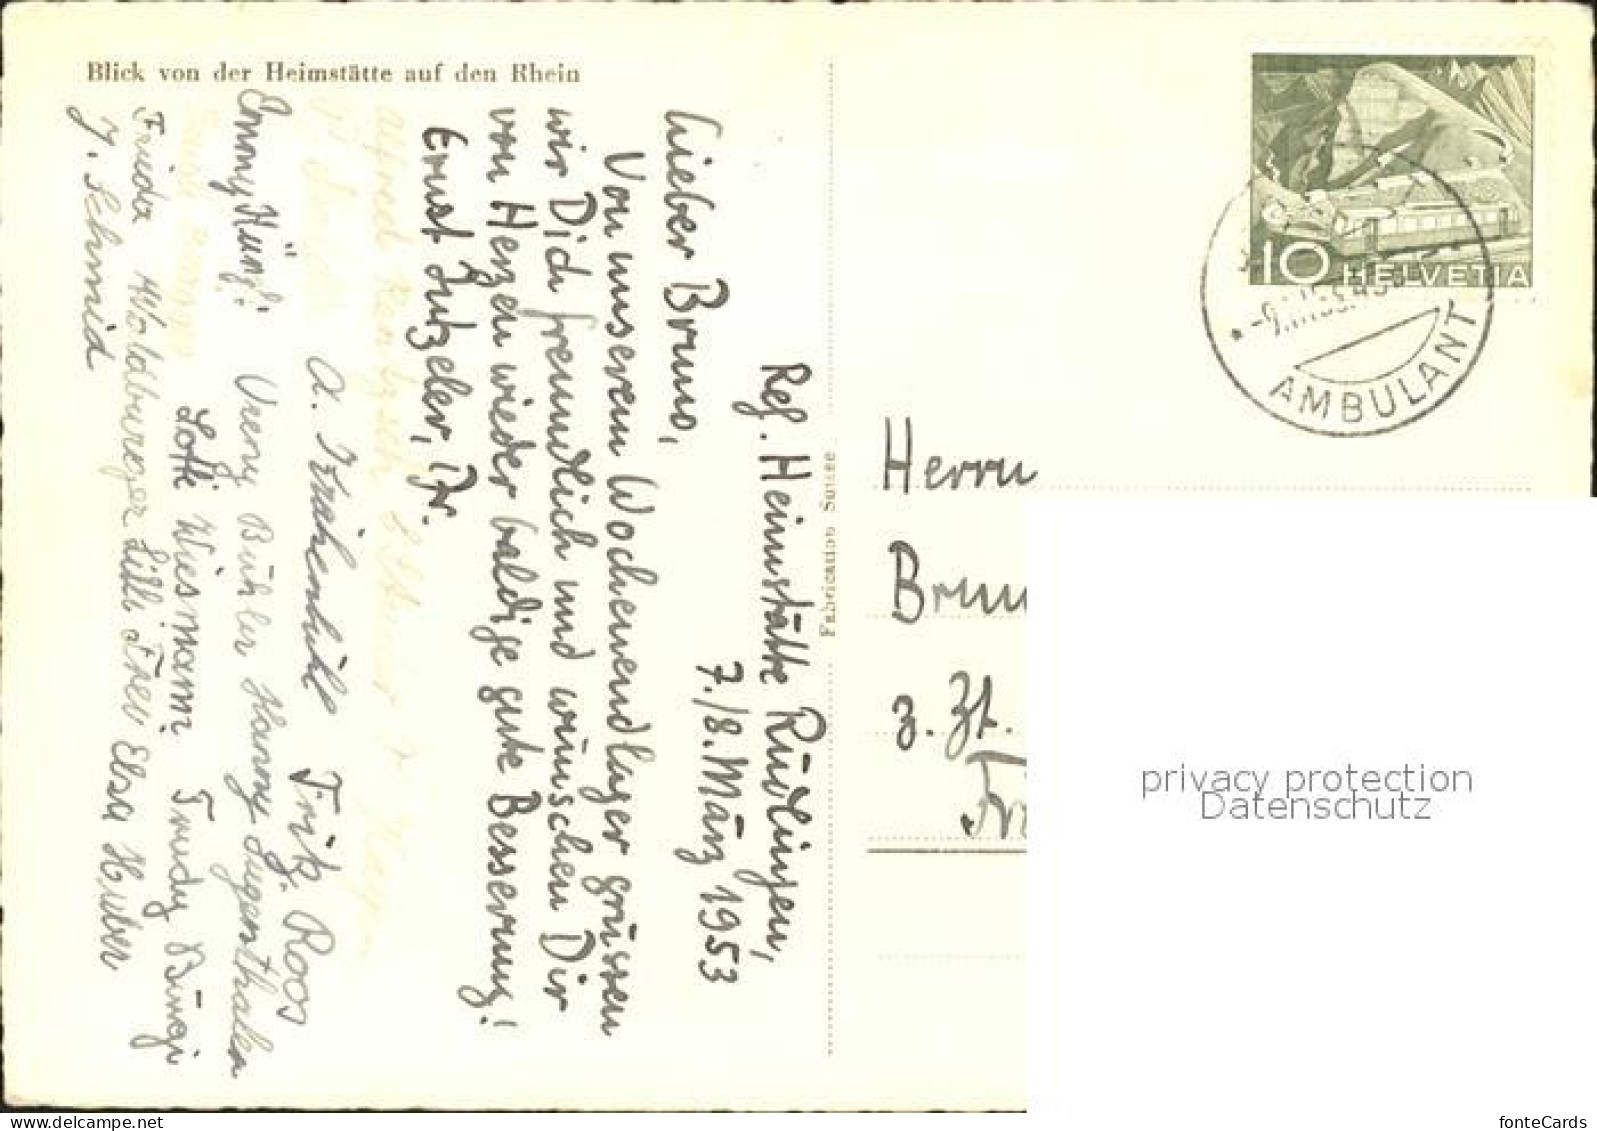 Blick von der Heimstätte auf den Rhein
Ref. Heimstätte Rüdlingen,
7./8. März 1953
Lieber Bruno,
Von unserem Wochenendlager grüssen
wir Dich freundlich und wünschen Dir
von Herzen wieder baldige gute Besserung!
Ernst Jutzeler, Pfr.
Alfred
A. Krähenbühl Fritz Roos
Emmy Küng. Vreny Bühler Hanny Lugenthaler
Lotti Wiesmann Trudy Büngi
Frieda Woldburger Lilli Frei Elsa Huber
J. Schmid
Fabrication Suisse
10 HELVETIA
AMBULANT
Herrn
Brun
z. Zt.
privacy protection
Datenschutz
fonteCards
www.delcampe.net